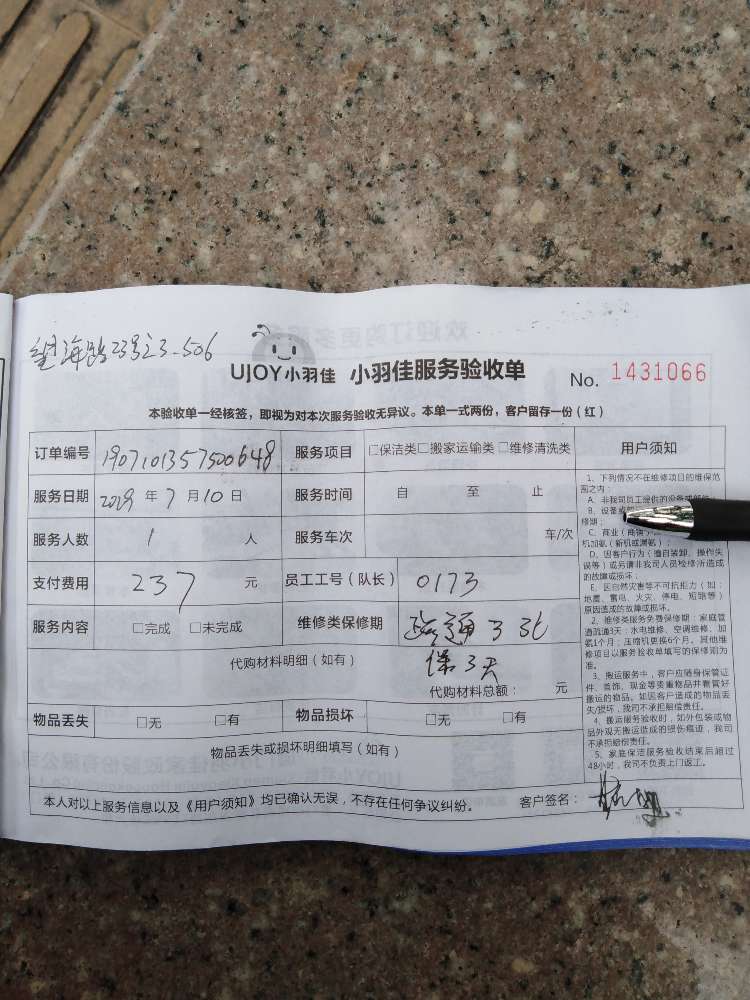 望海路23号之3-506
UJOY小羽佳 小羽佳服务验收单 No. 1431066
本验收单一经核签，即视为对本次服务验收无异议。本单一式两份，客户留存一份（红）
订单编号 1907101357500648 服务项目 □保洁类□搬家运输类□维修清洗类 用户须知
服务日期 2019 年 7 月 10 日 服务时间 自 至 止
服务人数 1 人 服务车次 车/次
支付费用 237 元 员工工号（队长） 0173
服务内容 □完成 □未完成 维修类保修期 疏通
保3天
代购材料明细（如有）
代购材料总额： 元
物品丢失 □无 □有 物品损坏 □无 □有
物品丢失或损坏明细填写（如有）
本人对以上服务信息以及《用户须知》均已确认无误，不存在任何争议纠纷。 客户签名：
1、下列情况不在维修项目的维保范
围之内：
A、非我司员工提供的设备或部件；
B、设备或
修期；
C、商业（商铺
机加氨（新机或漏氨）；
D、因客户行为（擅自装卸、操作失
误等）或另请非我司人员检修所造成
的故障或损坏；
E、因自然灾害等不可抗拒力（如：
地震、雷电、火灾、停电、短路等）
原因造成的故障或损坏。
2、维修类服务免费保修期：家庭管
道疏通3天；水电维修、空调维修、加
氨1个月；压缩机更换6个月。其他维
修项目以服务验收单填写的保修期为
准。
3、搬运服务中，客户应随身保管证
件、首饰、现金等贵重物品并看管好
搬运的物品。如因客户造成的物品丢
失/损坏，我司不承担赔偿责任。
4、搬运服务验收时，如外包装或物
品外观无搬运造成的损伤痕迹，我司
不承担赔偿责任。
5、家庭保洁服务验收结束后超过
48小时，我司不负责上门返工。